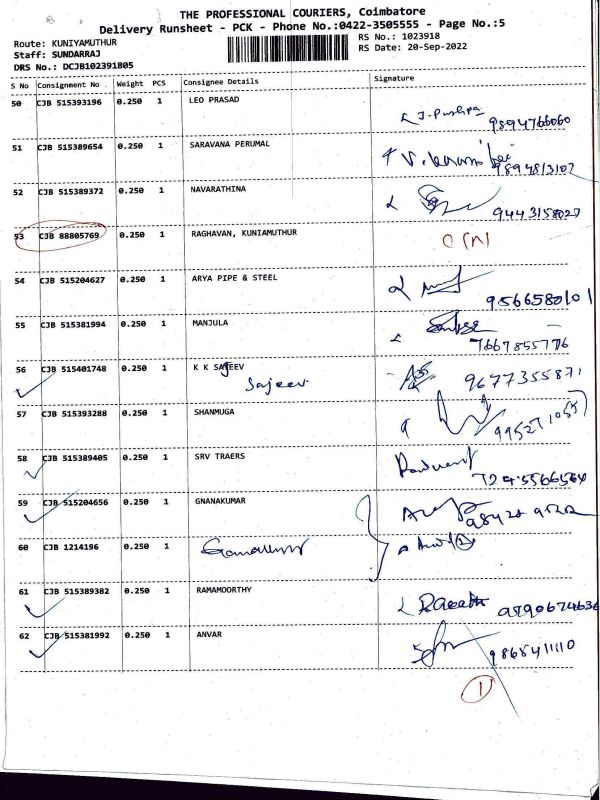 THE PROFESSIONAL COURIERS, Coimbatore
Delivery Runsheet - PCK - Phone No.:0422-3505555 - Page No.:5
Route: KUNIYAMUTHUR
RS No.: 1023918
Staff: SUNDARRAJ
RS Date: 20-Sep-2022
DRS No.: DCJB102391805
S No Consignment No Weight PCS Consignee Details Signature
50 CJB 515393196 0.250 1 LEO PRASAD J. Pushpa 9894766060
51 CJB 515389654 0.250 1 SARAVANA PERUMAL 9894813107
52 CJB 515389372 0.250 1 NAVARATHINA 9443158027
53 CJB 88805769 0.250 1 RAGHAVAN, KUNIAMUTHUR
54 CJB 515204627 0.250 1 ARYA PIPE & STEEL 9566580101
55 CJB 515381994 0.250 1 MANJULA 7667855776
56 CJB 515401748 0.250 1 K K SAJEEV 9677355871
Sajeev
57 CJB 515393288 0.250 1 SHANMUGA
58 CJB 515389405 0.250 1 SRV TRAERS
59 CJB 515204656 0.250 1 GNANAKUMAR
60 CJB 1214196 0.250 1
61 CJB 515389382 0.250 1 RAMAMOORTHY
62 CJB 515381992 0.250 1 ANVAR 9865411110
1